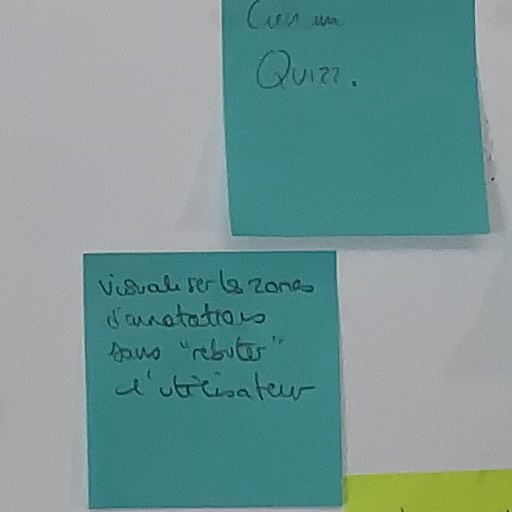 Créer un
Quizz.
visualiser les zones
d'annotations
sans "rebuter"
l'utilisateur